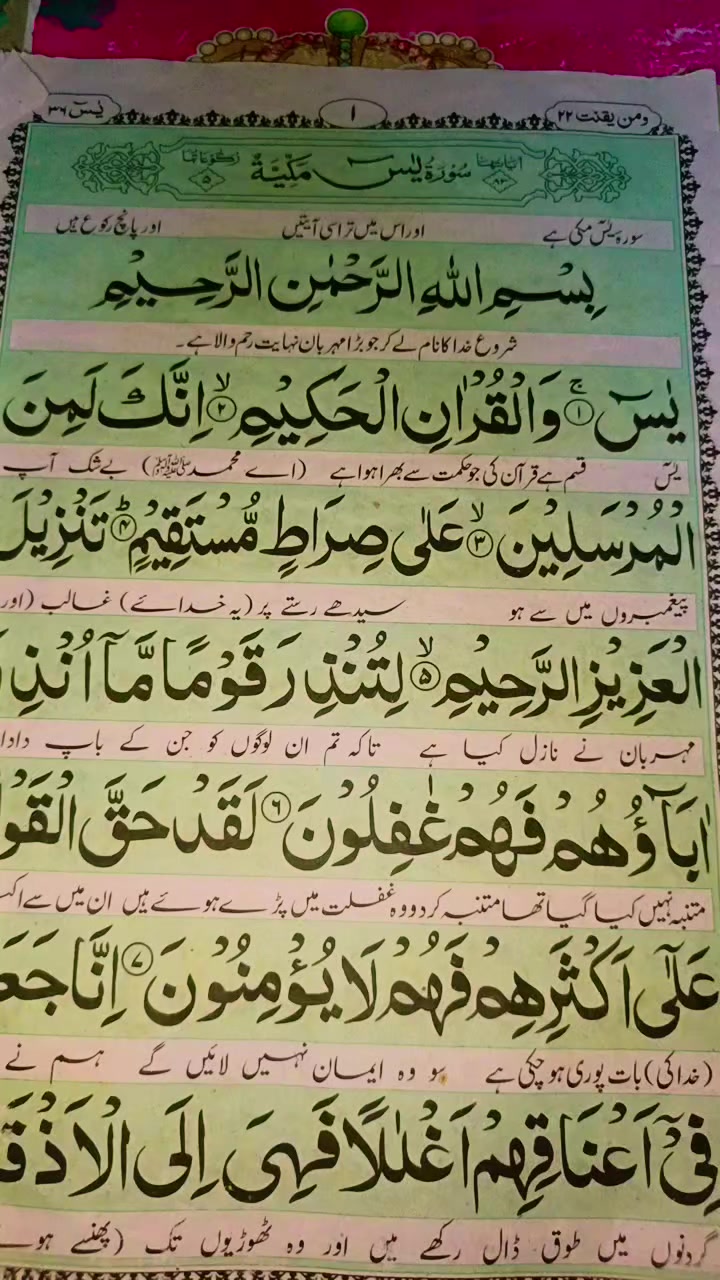 ومن یقنت ۲۲ ۱ یٰسٓ ۳۶
اٰیاتہا ۸۳ سُوْرَۃُ یٰسٓ مَکِّیَّۃٌ رکوعاتہا ۵
سورہ یٰسٓ مکی ہے اور اس میں تراسی آیتیں اور پانچ رکوع ہیں
بِسْمِ اللّٰهِ الرَّحْمٰنِ الرَّحِیْمِ
شروع خدا کا نام لے کر جو بڑا مہربان نہایت رحم والا ہے۔
یٰسٓ ۚ﴿۱﴾ وَالْقُرْاٰنِ الْحَکِیْمِ ۙ﴿۲﴾ اِنَّکَ لَمِنَ
یٰسٓ قسم ہے قرآن کی جو حکمت سے بھرا ہوا ہے (اے محمد ﷺ) بے شک آپ
الْمُرْسَلِیْنَ ۙ﴿۳﴾ عَلٰی صِرَاطٍ مُّسْتَقِیْمٍ ؕ﴿۴﴾ تَنْزِیْلَ
پیغمبروں میں سے ہو سیدھے رستے پر (یہ خدائے) غالب (اور
الْعَزِیْزِ الرَّحِیْمِ ۙ﴿۵﴾ لِتُنْذِرَ قَوْمًا مَّاۤ اُنْذِ
مہربان نے نازل کیا ہے تاکہ تم ان لوگوں کو جن کے باپ دادا
اٰبَآؤُهُمْ فَهُمْ غٰفِلُوْنَ ﴿۶﴾ لَقَدْ حَقَّ الْقَوْ
متنبہ نہیں کیا گیا تھا متنبہ کر دو وہ غفلت میں پڑے ہوئے ہیں ان میں سے اکث
عَلٰۤی اَکْثَرِهِمْ فَهُمْ لَا یُؤْمِنُوْنَ ﴿۷﴾ اِنَّا جَعَ
(خدا کی) بات پوری ہو چکی ہے سو وہ ایمان نہیں لائیں گے ہم نے
فِیْۤ اَعْنَاقِهِمْ اَغْلٰلًا فَهِیَ اِلَی الْاَذْقَ
گردنوں میں طوق ڈال رکھے ہیں اور وہ ٹھوڑیوں تک (پھنسے ہوئے